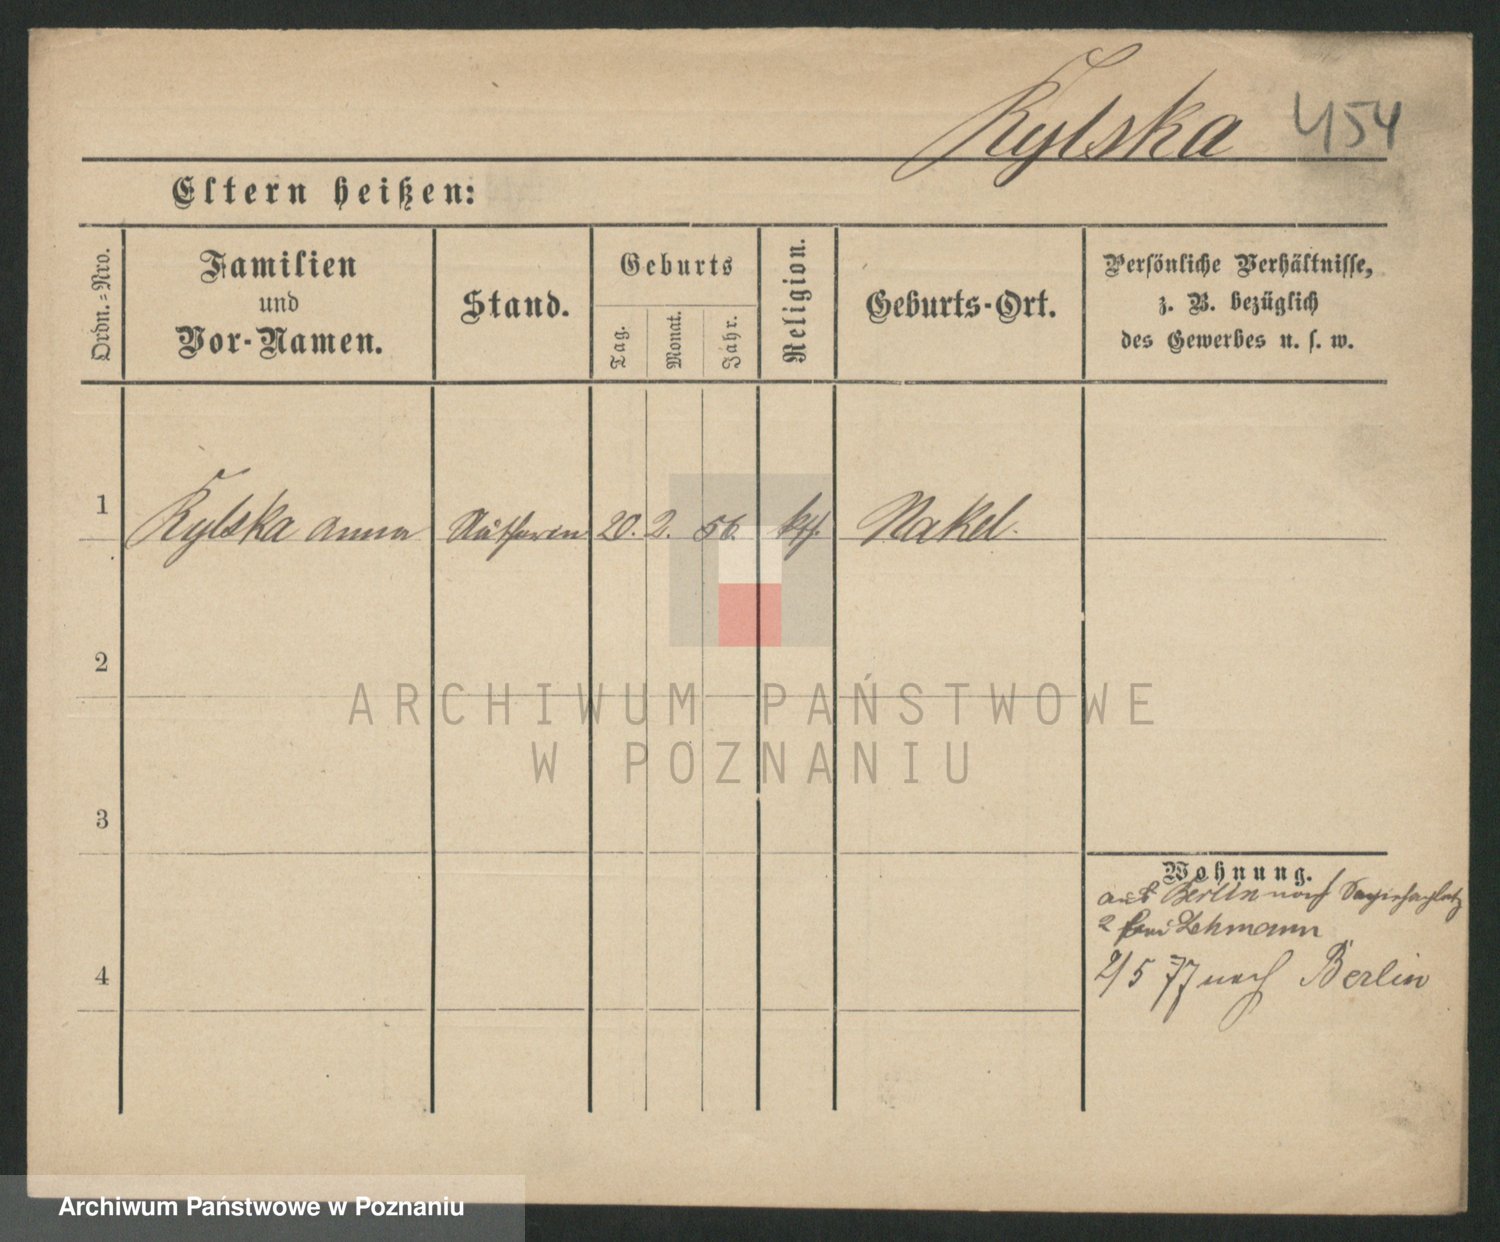 Kylska 454
Eltern heißen:
Ordn.=Nro.
Familien
und
Vor-Namen.
Stand.
Geburts
Tag.
Monat.
Jahr.
Religion.
Geburts-Ort.
Persönliche Verhältnisse,
z. B. bezüglich
des Gewerbes u. s. w.
1 Kylska Anna Näherin 20. 2. 56. kth. Nakel.
2
3
4
Wohnung.
aus Berlin nach
2 bei Lehmann
2/5 77 nach Berlin
ARCHIWUM PAŃSTWOWE
W POZNANIU
Archiwum Państwowe w Poznaniu